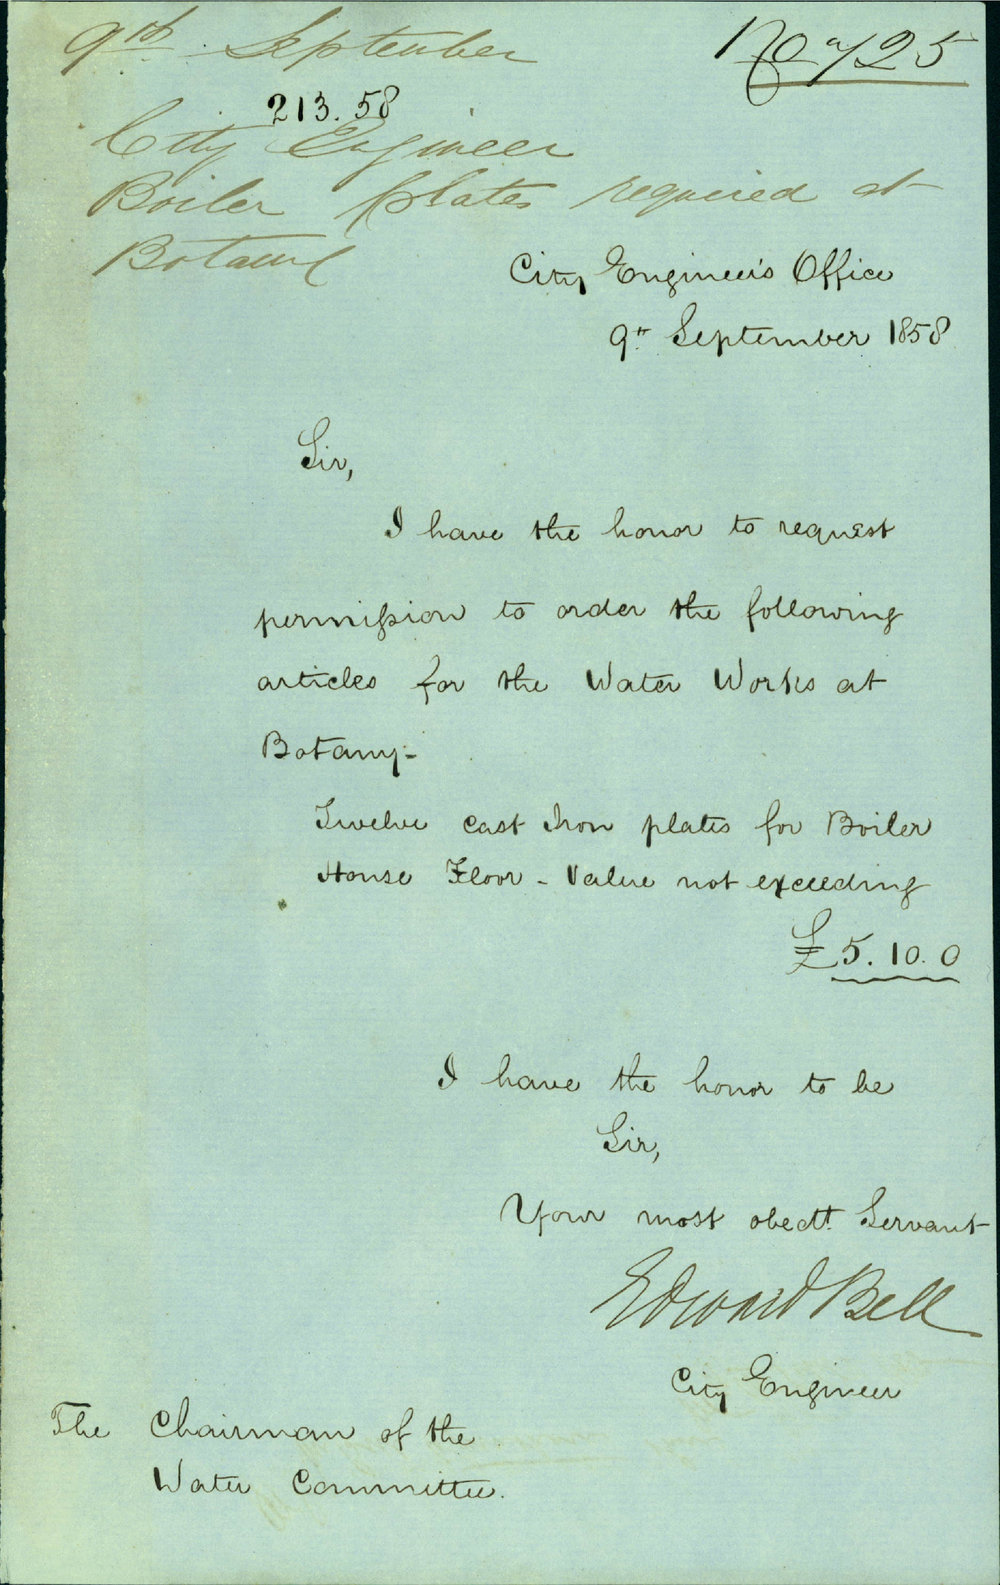 9th September
No 925
213.58
City Engineer
Boiler plates required at
Botany
City Engineer's Office
9th September 1858
Sir,
I have the honor to request
permission to order the following
articles for the Water Works at
Botany-
Twelve cast Iron plates for Boiler
House Floor - Value not exceeding
£5.10.0
I have the honor to be
Sir,
Your most obedt. Servant
Edward Bell
City Engineer
The Chairman of the
Water Committee.